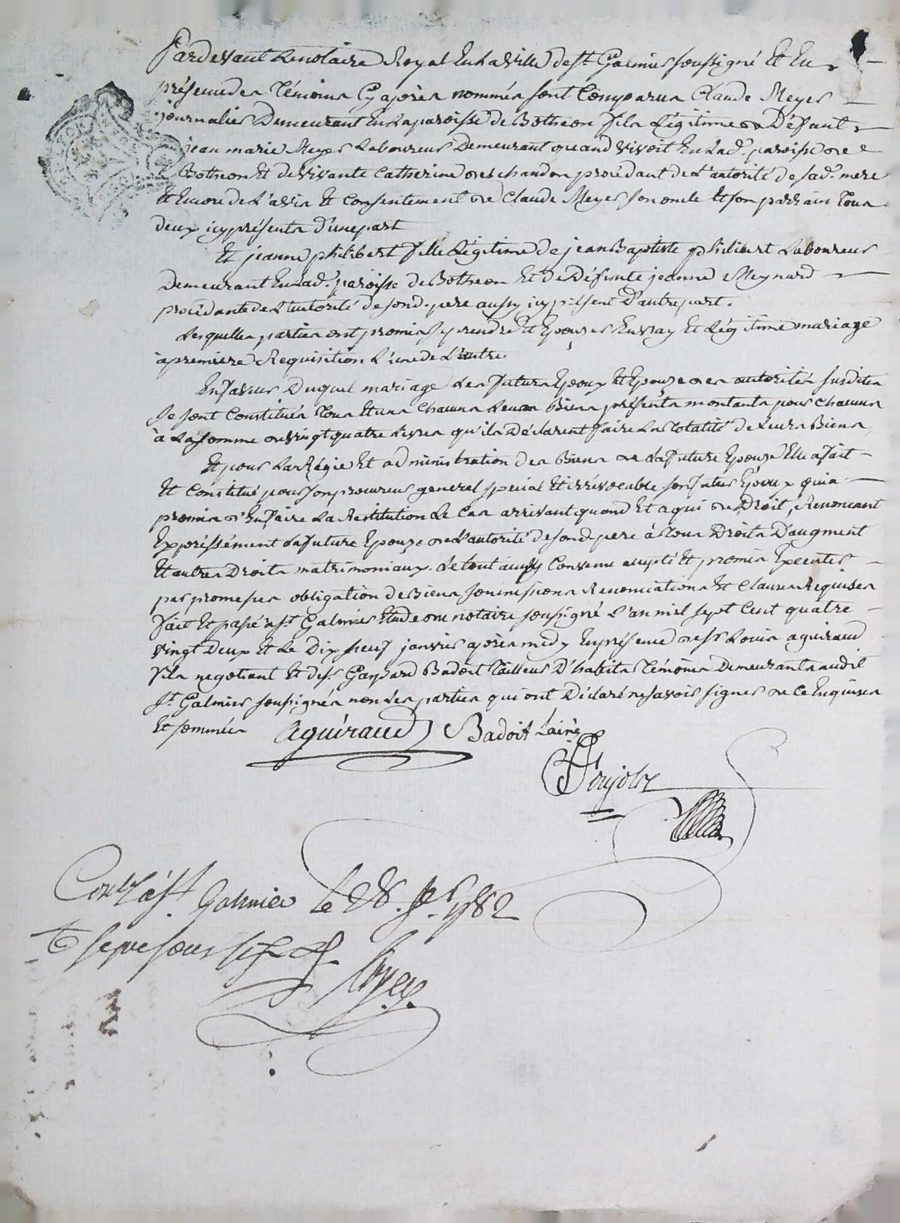 Pardevant Lenotaire Royal En La Ville de st Galmier soussigné Et En
présence des témoins Cy après nommés sont Comparus Claude Meyer
journalier Demeurant En La paroisse de Botheon fils Légitime de Défunt
jean marie Meyer Laboureur Demeurant quand vivoit En Lad. paroisse de
Botheon Et de vivante Catherine dechandon procédant de L'autorité de sad. mere
Et Encore de L'avis Et Consentement de Claude Meyer son oncle Et son parrain tous
deux icy présents D'une part
Et jeanne philibert fille Légitime de jean Baptiste philibert Laboureur
Demeurant En Lad. paroisse de Botheon Et de Défunte jeanne Meynard
procédante de L'autorité de sond. pere aussy icy présent D'autre part.
Lesquelles parties ont promis se prendre Et Epouser En vray Et Légitime mariage
à premiere Requisition L'une de L'autre
En faveur Duquel mariage Les futurs Epoux Et Epouze des autorités susdites
se sont Constitués tous Et uns Chacuns Leurs Biens présents montants pour Chacun
à La somme de vingt quatre Livres qu'ils Déclarent faire La totalité de Leurs Biens
Et pour La Régie Et administration des Biens de La future Epouze Elle a fait
Et Constitué pour son procureur general spécial Et irrévocable son futur Epoux qui a
promis d'En faire La Restitution Le Cas arrivant quand Et a qui de Droit, Renonçant
Expréssément La future Epouze de L'autorité de sond pere à tous Droits D'augment
Et autres Droits matrimoniaux. Le tout ainsy Convenu acepté Et promis Executer
par promesses obligation de Biens soumissions Renonciations Et Clauses Requises
fait Et passé a st. Galmier Etude du notaire soussigné L'an mil sept Cent quatre
vingt deux Et Le Dix neuf janvier après midy En présence de sr. Louis aguiraud
fils negotiant Et de sr. Gaspard Badoit tailleur D'habits témoins Demeurants audit
st. Galmier soussignés non Les parties qui ont Déclaré ne savoir signer de ce Enquises
Et sommées
aguéraud Badoit Lainé
Pujolz
Con.lé à st. Galmier le 28. je.r 1782